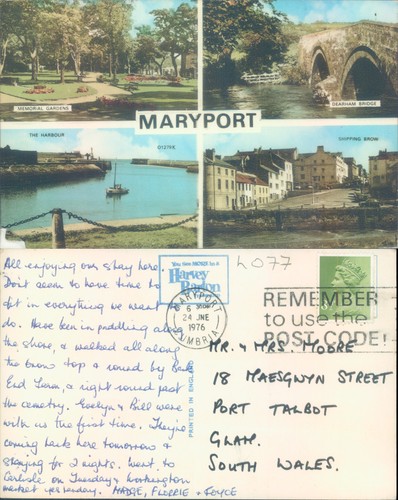 MEMORIAL GARDENS
DEARHAM BRIDGE
MARYPORT
THE HARBOUR
SHIPPING BROW
All enjoying our stay here.
Don't seem to have time to
fit in everything we want
do. Have been in paddling along
the shore, & walked all along
the brow top & round by Bank
End Farm, a right round past
the cemetry. Evelyn & Bill were
with us the first time. They're
coming back here tomorrow &
staying for 2 nights. Went to
Carlisle on Tuesday & Workington
market yesterday. MADGE, FLORRIE & JOYCE
PRINTED IN ENGLAND
You See MORE in a
Harvey
Barton
4077
MARYPORT
6
24 JNE
1976
CUMBRIA
REMEMBER
to use the
POST CODE!
MR. & MRS. MOORE
18 MAESGWYN STREET
PORT TALBOT
GLAM.
SOUTH WALES.